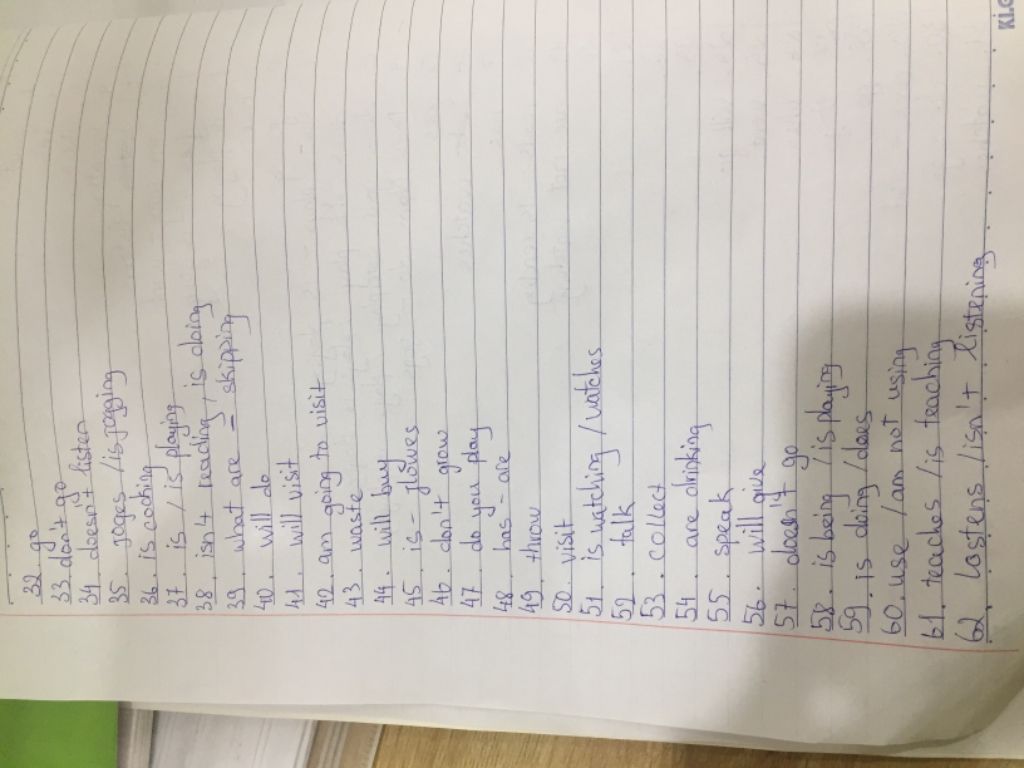 32. go
33. don't go
34. doesn't listen
35. joges / is jogging
36. is coching
37. is / is playing
38. isn't reading, is doing
39. what are – skipping
40. will do
41. will visit
42. am going to visit
43. waste
44. will buy
45. is - gloves
46. don't grow
47. do you play
48. has - are
49. throw
50. visit
51. is watching / watches
52. talk
53. collect
54. are drinking
55. speak
56. will give
57. doesn't go
58. is being / is playing
59. is doing / does
60. use / am not using
61. teaches / is teaching
62. Lastens / isn't listening